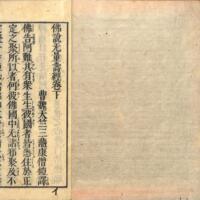 佛說無量壽經卷下
曹魏天竺三藏康僧鎧譯
佛告阿難其有衆生生彼國者皆悉住於正
定之聚所以者何彼佛國中無諸邪聚及不